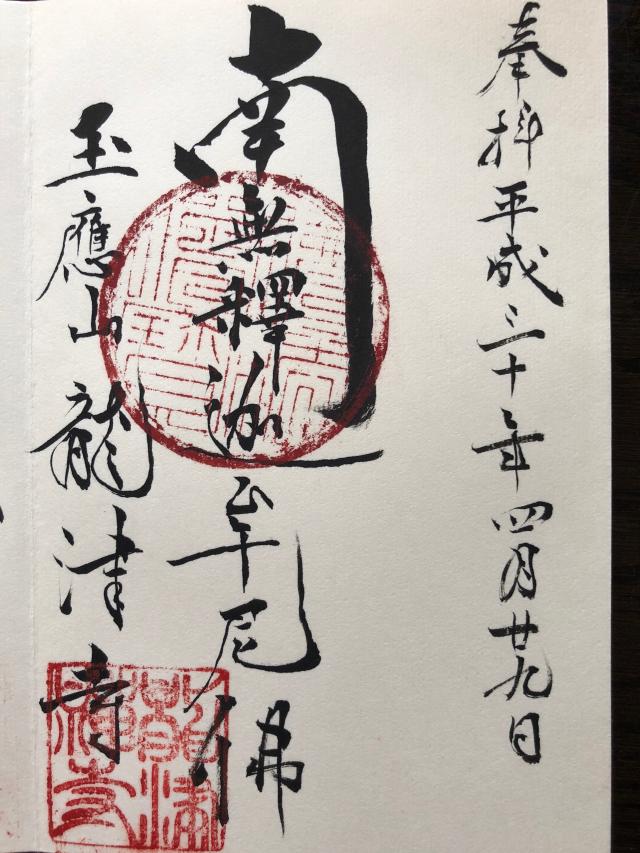 奉拝平成三十年四月廿九日
南無釋迦牟尼佛
玉應山龍津寺